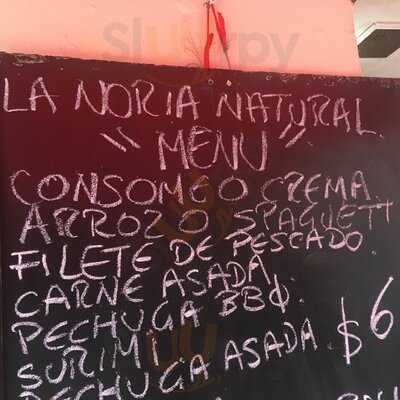 LA NORIA NATURAL
"MENU"
CONSOMÉ O CREMA
ARROZ O SPAGUETTI
FILETE DE PESCADO
CARNE ASADA
PECHUGA BBQ.
SURIMI $6
PECHUGA ASADA